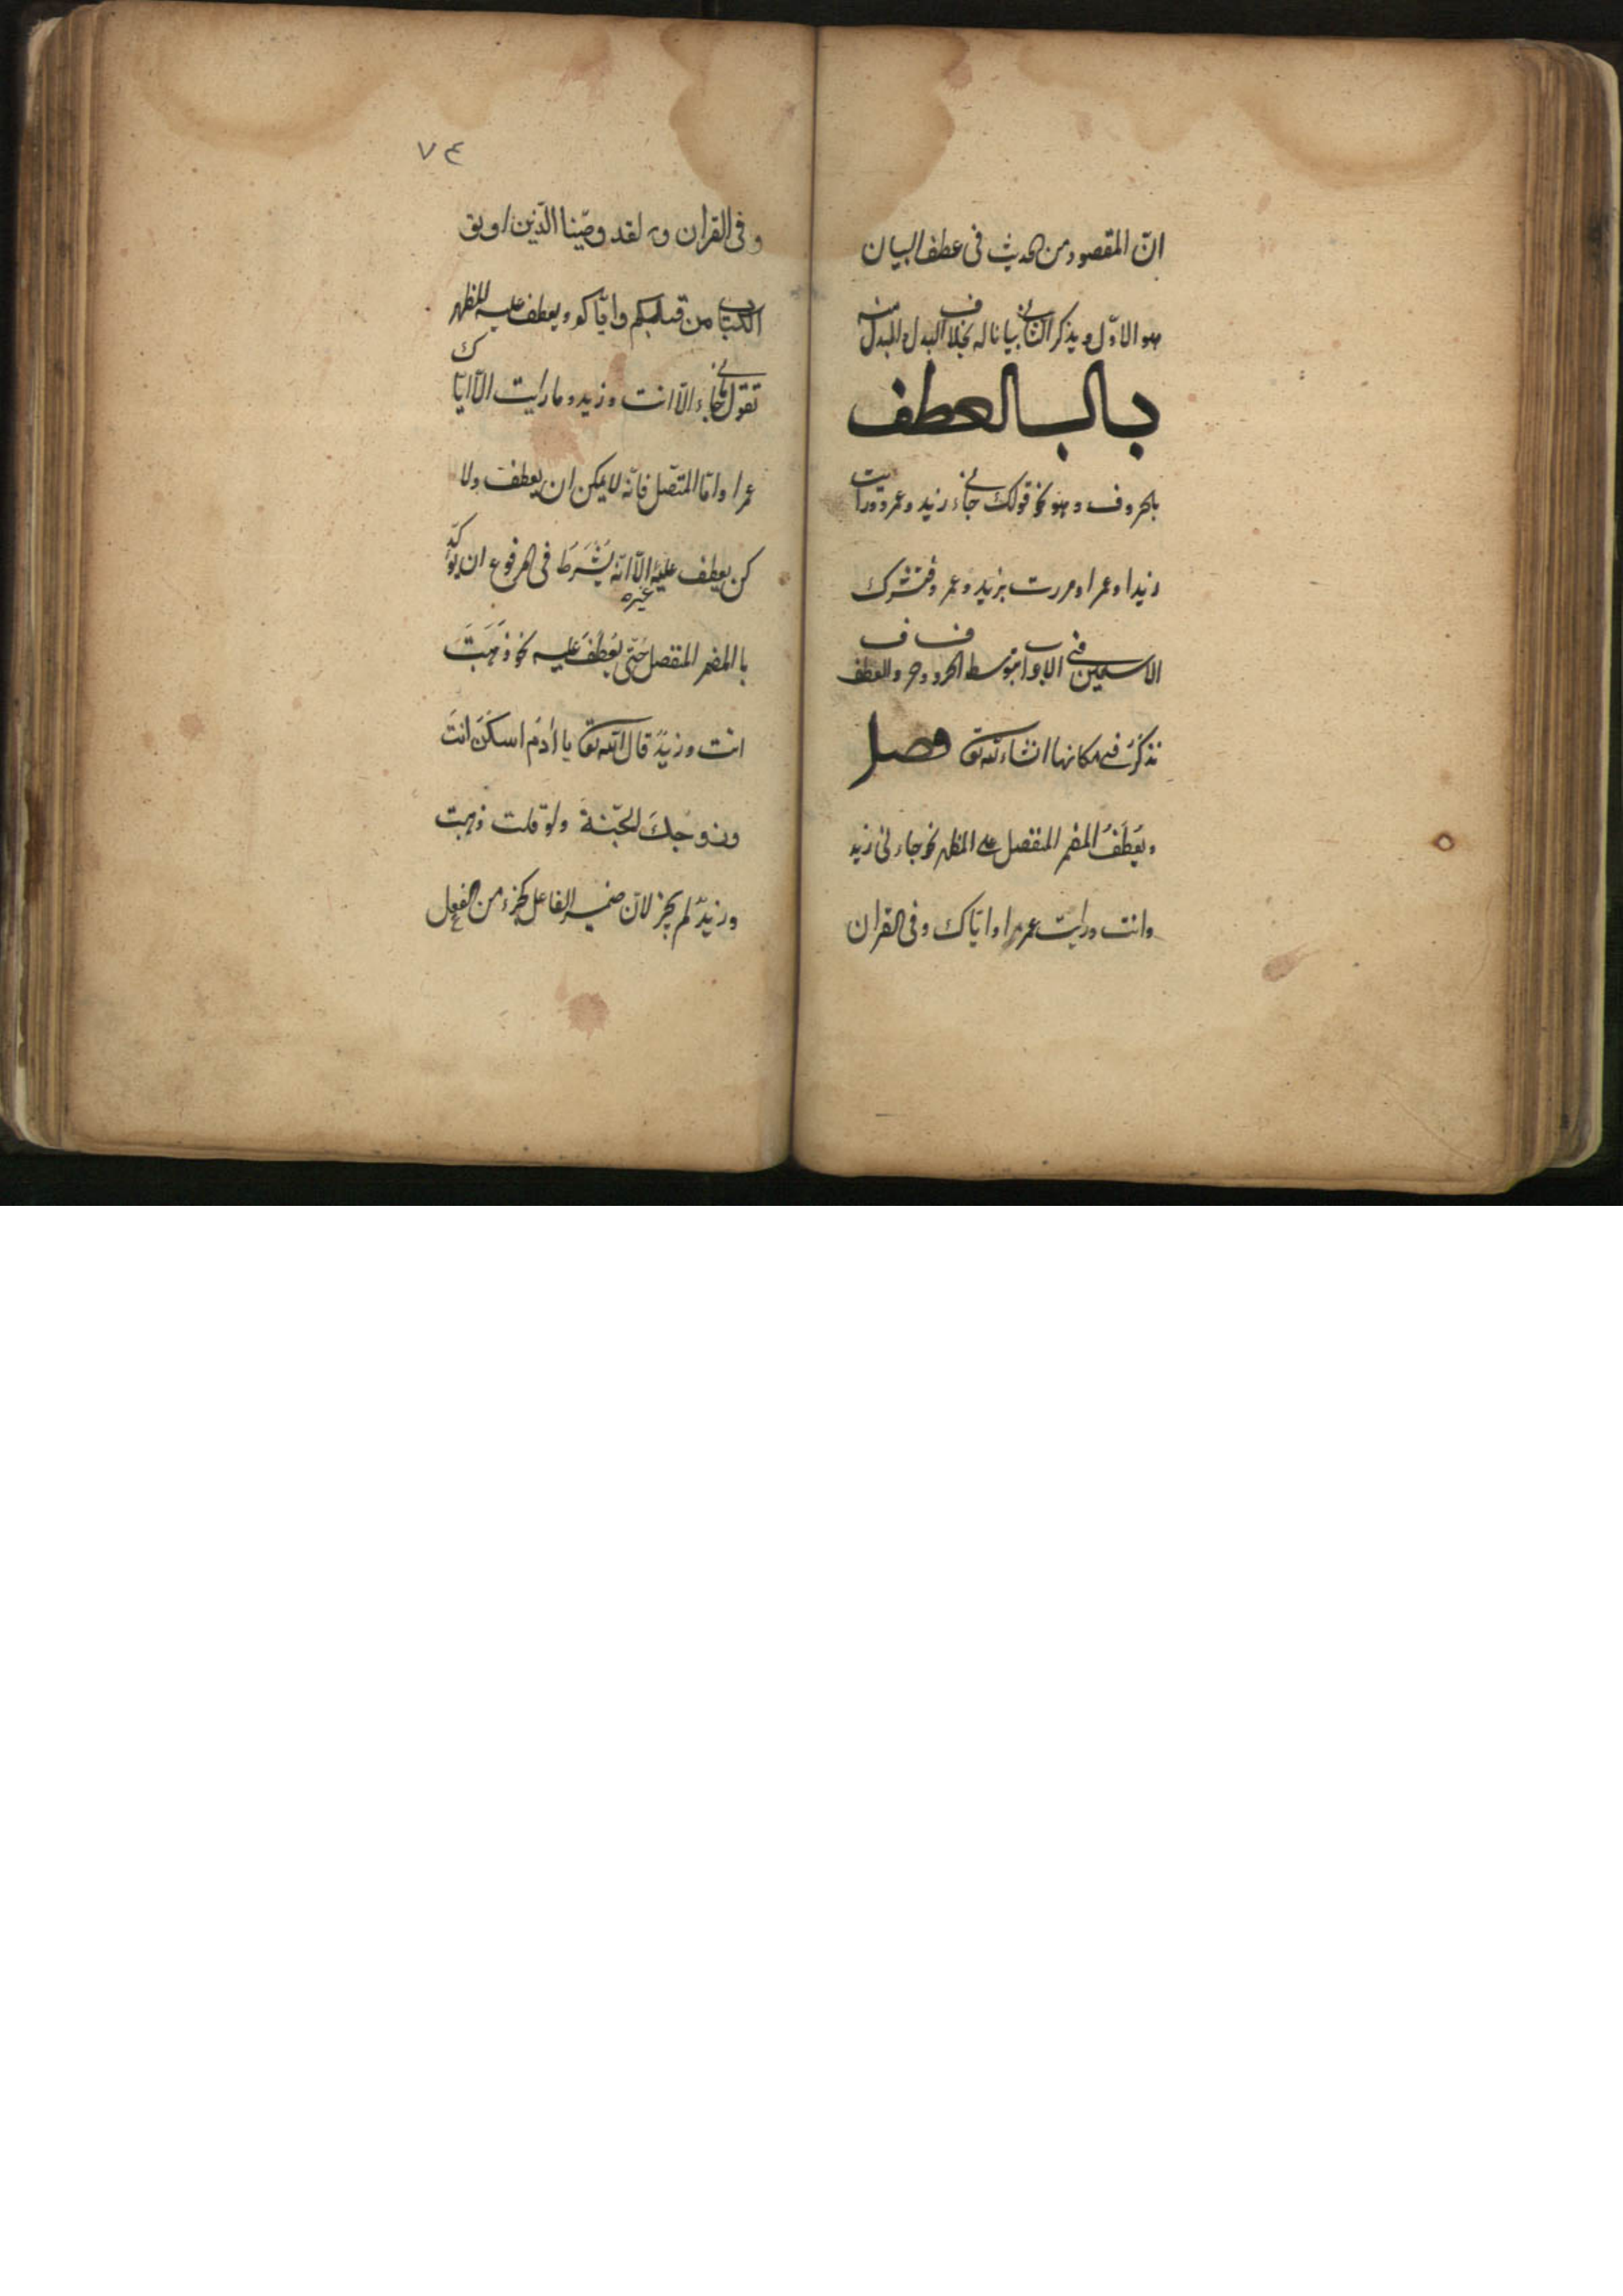 انّ المقصود من الحديث فى عطف البيان
هو الاوّل و يذكر الثانى بيانا له بخلاف البدل و المبدل منه
باب العطف
بالحروف و هو نحو قولك جاءنى زيد و عمرو و رايت
زيدا و عمرا و مررت بزيد و عمرو فتشرك
الاسمين فى الاعراب بتوسط الحروف و حروف العطف
نذكر فى مكانها انشاء الله تعـ فصل
و يُعطَفُ المضمر المنفصل على المظهر نحو جاءنى زيد
وانت ورايت عمرا و ايّاك و فى القران
٧٤
و فى القران و لقد وصّينا الّذين اوتو
الكتاب من قبلكم وايّاكم و يعطف عليه المظهر
تقول ما جاءنى الّا انت و زيد و ما رايت الّا ايّاك
عمرا و امّا المتّصل فانّه لا يمكن ان يعطف و لا
كن يعطف عليه غيره الّا انّه يُشترَطَ فى المرفوع ان يؤكّد
باالمضمر المنفصل حتّى يُعطَفَ عليه نحو ذَهَبتَ
انت و زيدٌ قال الله تعـ يا اٰدَمُ اسكُنَ انتَ
و زوجكَ الجنّة و لو قلت ذهبت
و زيدٌ لم يجز لانّ ضمير الفاعل كجزء من الفعل